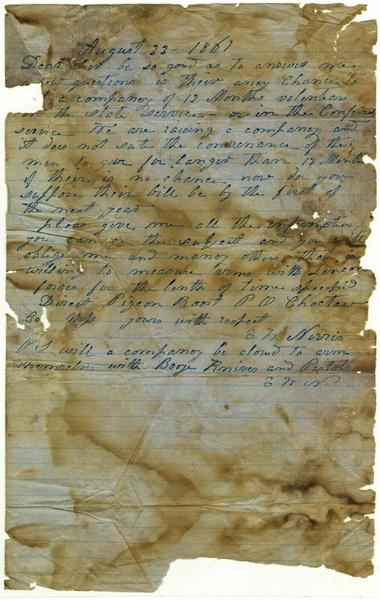 August 22 - 1861
Dear Sir be so good as to answer me
few questions is their aney Chance to
a companey of 12 Months volenteers
in the State Service or in the Confeder
service We are raising a companey and
it does not sute the convenance of the
men to goe for langer than 12 Months
if their is no chance now do you
suppose their will be by the first of
the next year
please give me all the information
you can on the subject and you will
oblige me and maney others that a
willing to measure arms with Lincon
forces for the lenth of time specifid
Direct Pigeon Roost P O Choctaw
Co Miss yours with respect
E W Norris
P S will a companey be alowd to arm
themselves with Booye Knives and Pistols
E W N